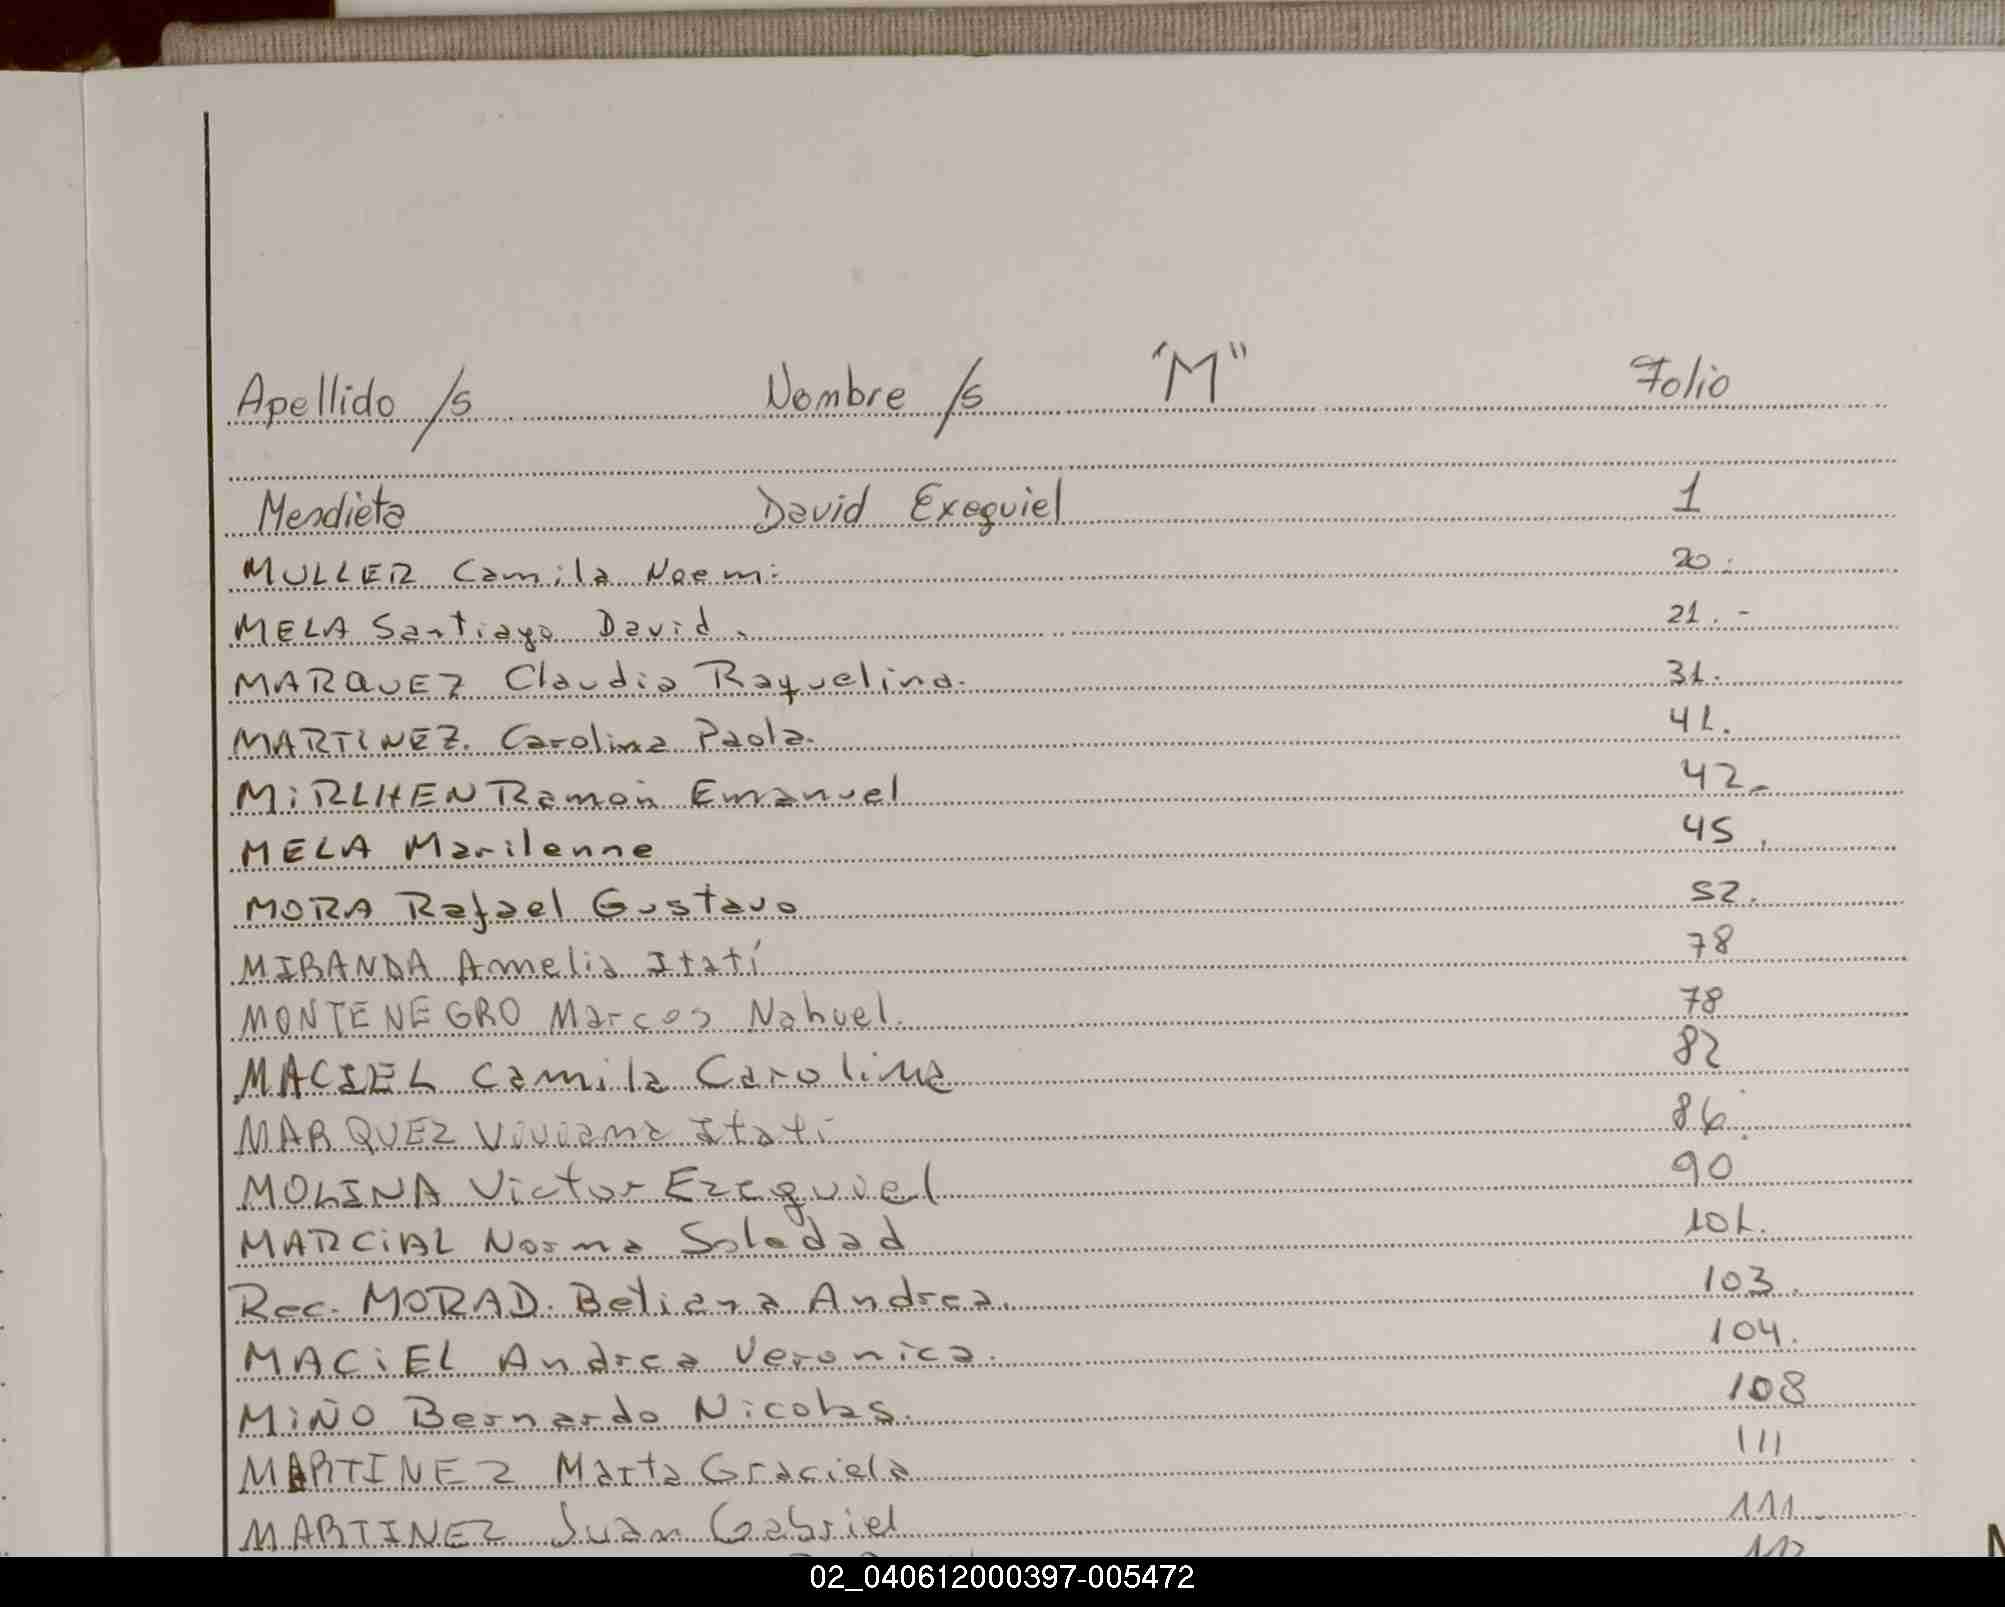 Apellido/s Nombre/s "M" Folio
Mendieta David Exequiel 1
MULLER Camila Noemi 20.
MELA Santiago David. 21.-
MARQUEZ Claudia Raquelina. 31.
MARTINEZ. Carolina Paola. 41.
MiRLHEN Ramón Emanuel 42.
MELA Marilenne 45.
MORA Rafael Gustavo 52.
MIRANDA Amelia Itatí 78
MONTENEGRO Marcos Nahuel. 78
MACIEL Camila Carolina 82
MARQUEZ Viviana Itati 86.
MOLINA Victor Ezequiel 90
MARCiAL Norma Soledad 101.
Rec. MORAD. Betiana Andrea. 103.
MACiEL Andrea Veronica. 104.
MiÑO Bernardo Nicolas. 108
MARTINEZ Marta Graciela 111
MARTINEZ Juan Gabriel 111
02_040612000397-005472